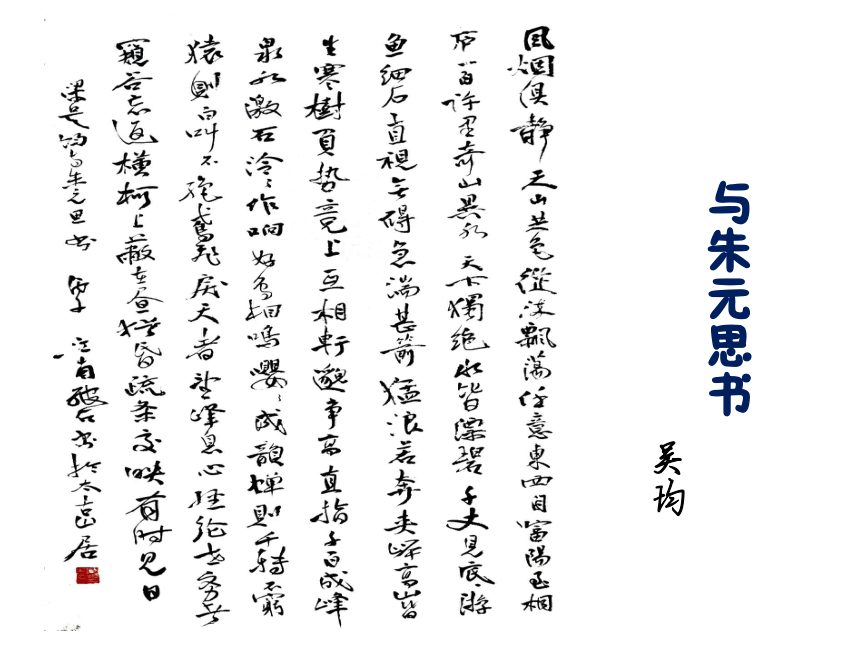 与朱元思书
吴均
風烟俱静天山共色從流飄蕩任意東西自富陽至桐
庐一百许里奇山異水天下獨绝水皆漂碧千丈見底游
鱼细石直視无碍急湍甚箭猛浪若奔夹岸高山皆
生寒樹負势竞上互相軒邈争高直指千百成峰
泉水激石泠泠作响好鸟相鳴嚶嚶成韻蝉則千转不窮
猿則百叫不绝鳶飞戾天者望峰息心經纶世务者
窺谷忘返横柯上蔽在昼犹昏疏条交映有时見日
梁吴均与朱元思书
书於太 居